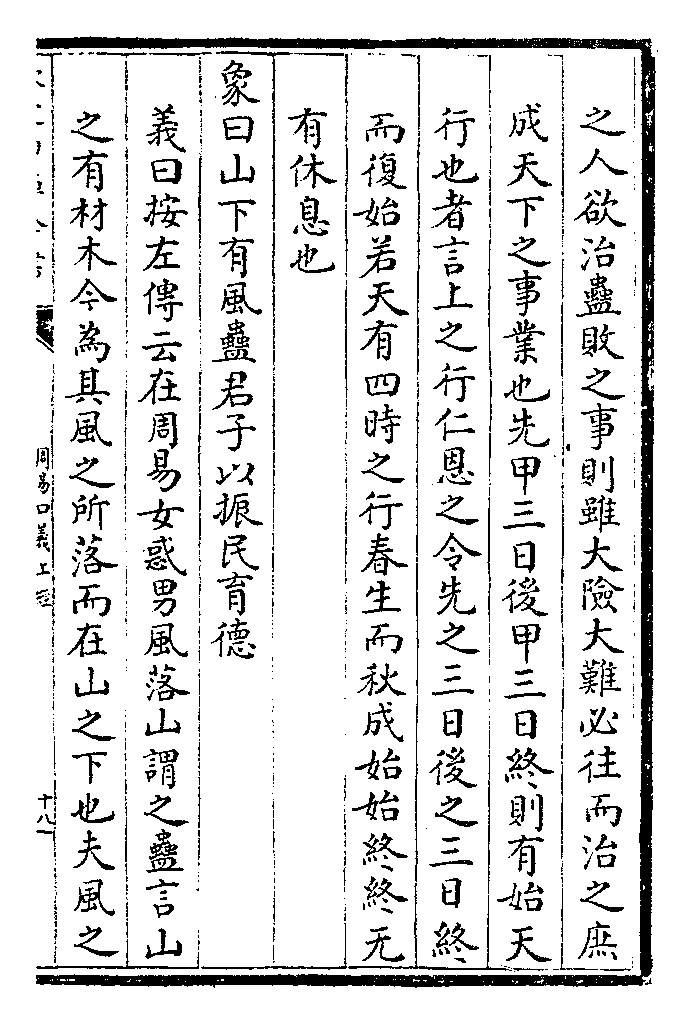 之人欲治蠱敗之事則雖大險大難必往而治之庶
成天下之事業也先甲三日後甲三日終則有始天
行也者言上之行仁恩之令先之三日後之三日終
而復始若天有四時之行春生而秋成始始終終无
有休息也
象曰山下有風蠱君子以振民育德
義曰按左傳云在周易女惑男風落山謂之蠱言山
之有材木今為其風之所落而在山之下也夫風之
周易口義上經
十八